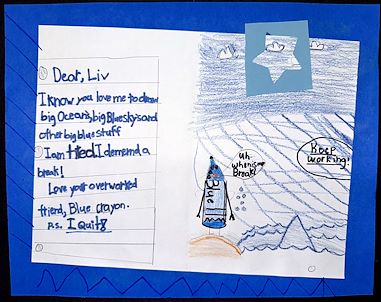 Dear, Liv
I know you love me to draw
big Oceans, big Blueskys and
other big blue stuff
I am tired. I demernd a
break!
Love your overworked
friend, Blue crayon.
P.s. I Quit
Uh
when is my
Break!
Keep
working!
Blue